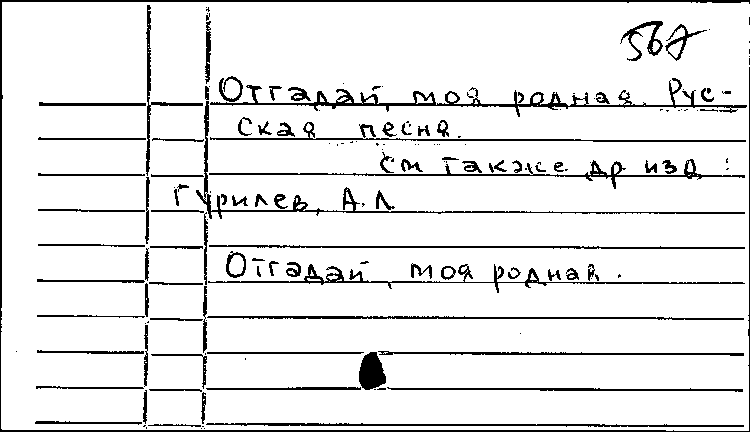 567
Отгадай, моя родная. Рус-
ская песня.
см также др изд :
Гурилев, А. Л.
Отгадай, моя родная.